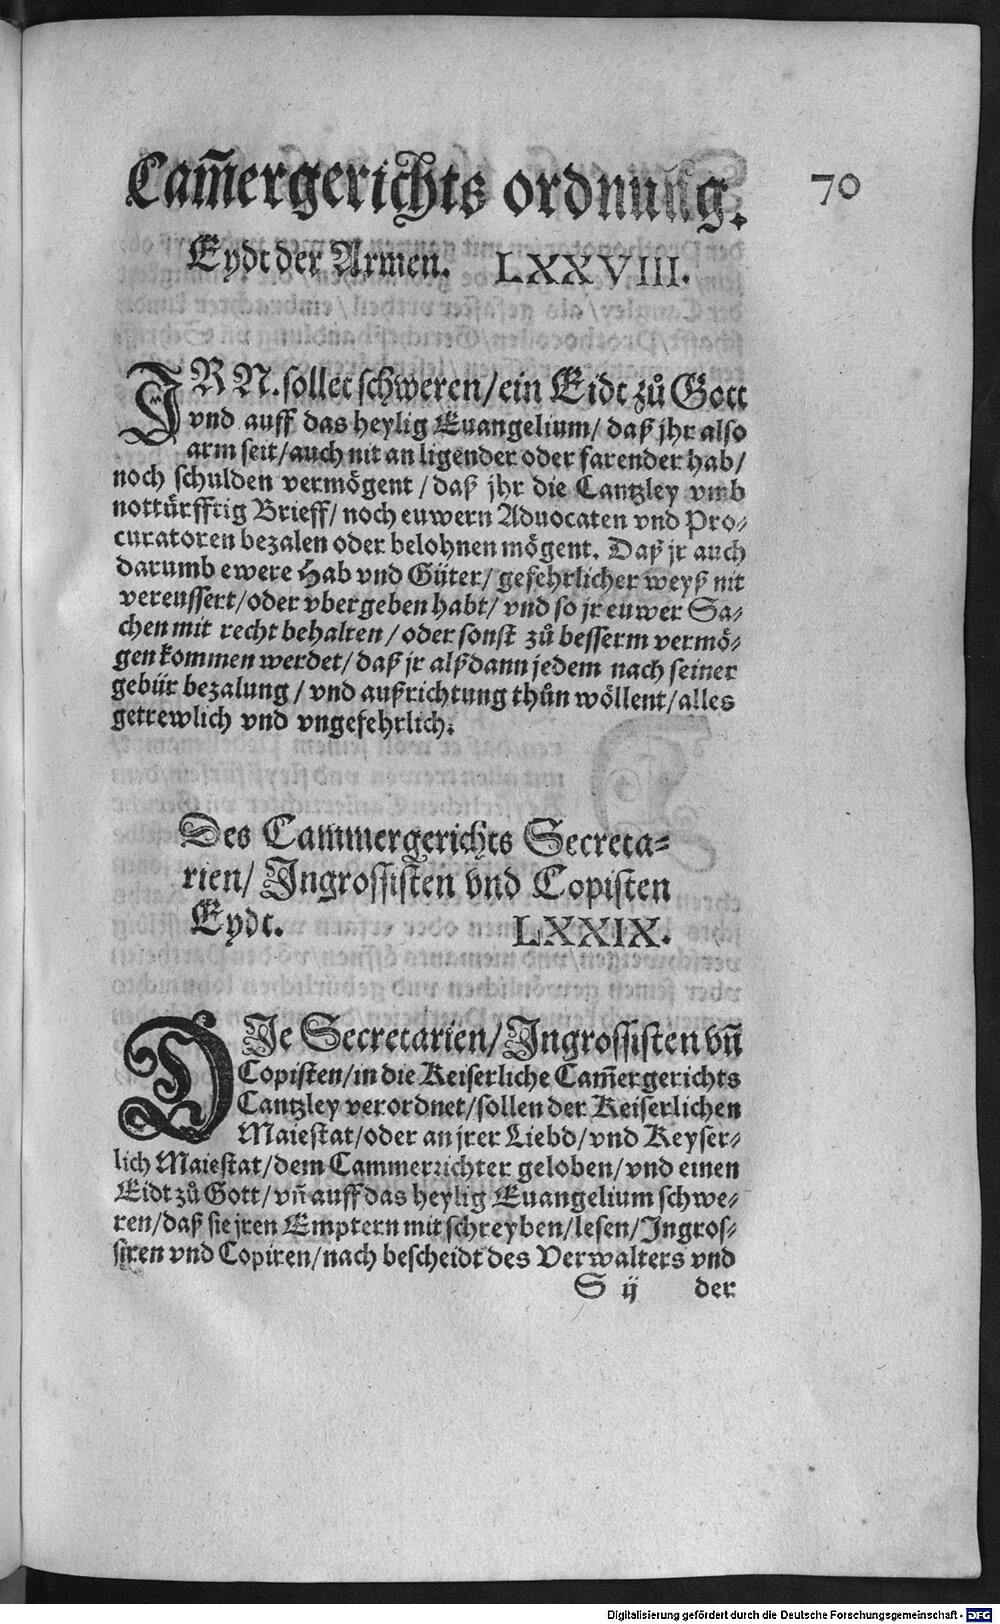 Cam̃ergerichts ordnung.
70
Eydt der Armen. LXXVIII.
IR N. sollet schweren/ein Eidt zů Gott
vnd auff das heylig Euangelium/ daß jhr also
arm seit/auch nit an ligender oder farender hab/
noch schulden vermögent/daß jhr die Cantzley vmb
nottürfftig Brieff/ noch euwern Aduocaten vnd Pro-
curatoren bezalen oder belohnen mögent. Daß jr auch
darumb ewere Hab vnd Güter/ gefehrlicher weyß nit
vereussert/oder vbergeben habt/ vnd so jr euwer Sa-
chen mit recht behalten/oder sonst zů besserm vermö-
gen kommen werdet/daß jr alßdann jedem nach seiner
gebür bezalung/ vnd außrichtung thůn wöllent/alles
getrewlich vnd vngefehrlich.
Des Cammergerichts Secreta-
rien/ Ingrossisten vnd Copisten
Eydt. LXXIX.
DIe Secretarien/Ingrossisten vñ
Copisten/in die Keiserliche Cam̃ergerichts
Cantzley verordnet/sollen der Keiserlichen
Maiestat/oder an jrer Liebd/vnd Keyser-
lich Maiestat/dem Cammerrichter geloben/vnd einen
Eidt zů Gott/vñ auff das heylig Euangelium schwe-
ren/daß sie jren Emptern mit schreyben/lesen/Ingros-
siren vnd Copiren/nach bescheidt des Verwalters vnd
S ij der
Digitalisierung gefördert durch die Deutsche Forschungsgemeinschaft - DFG